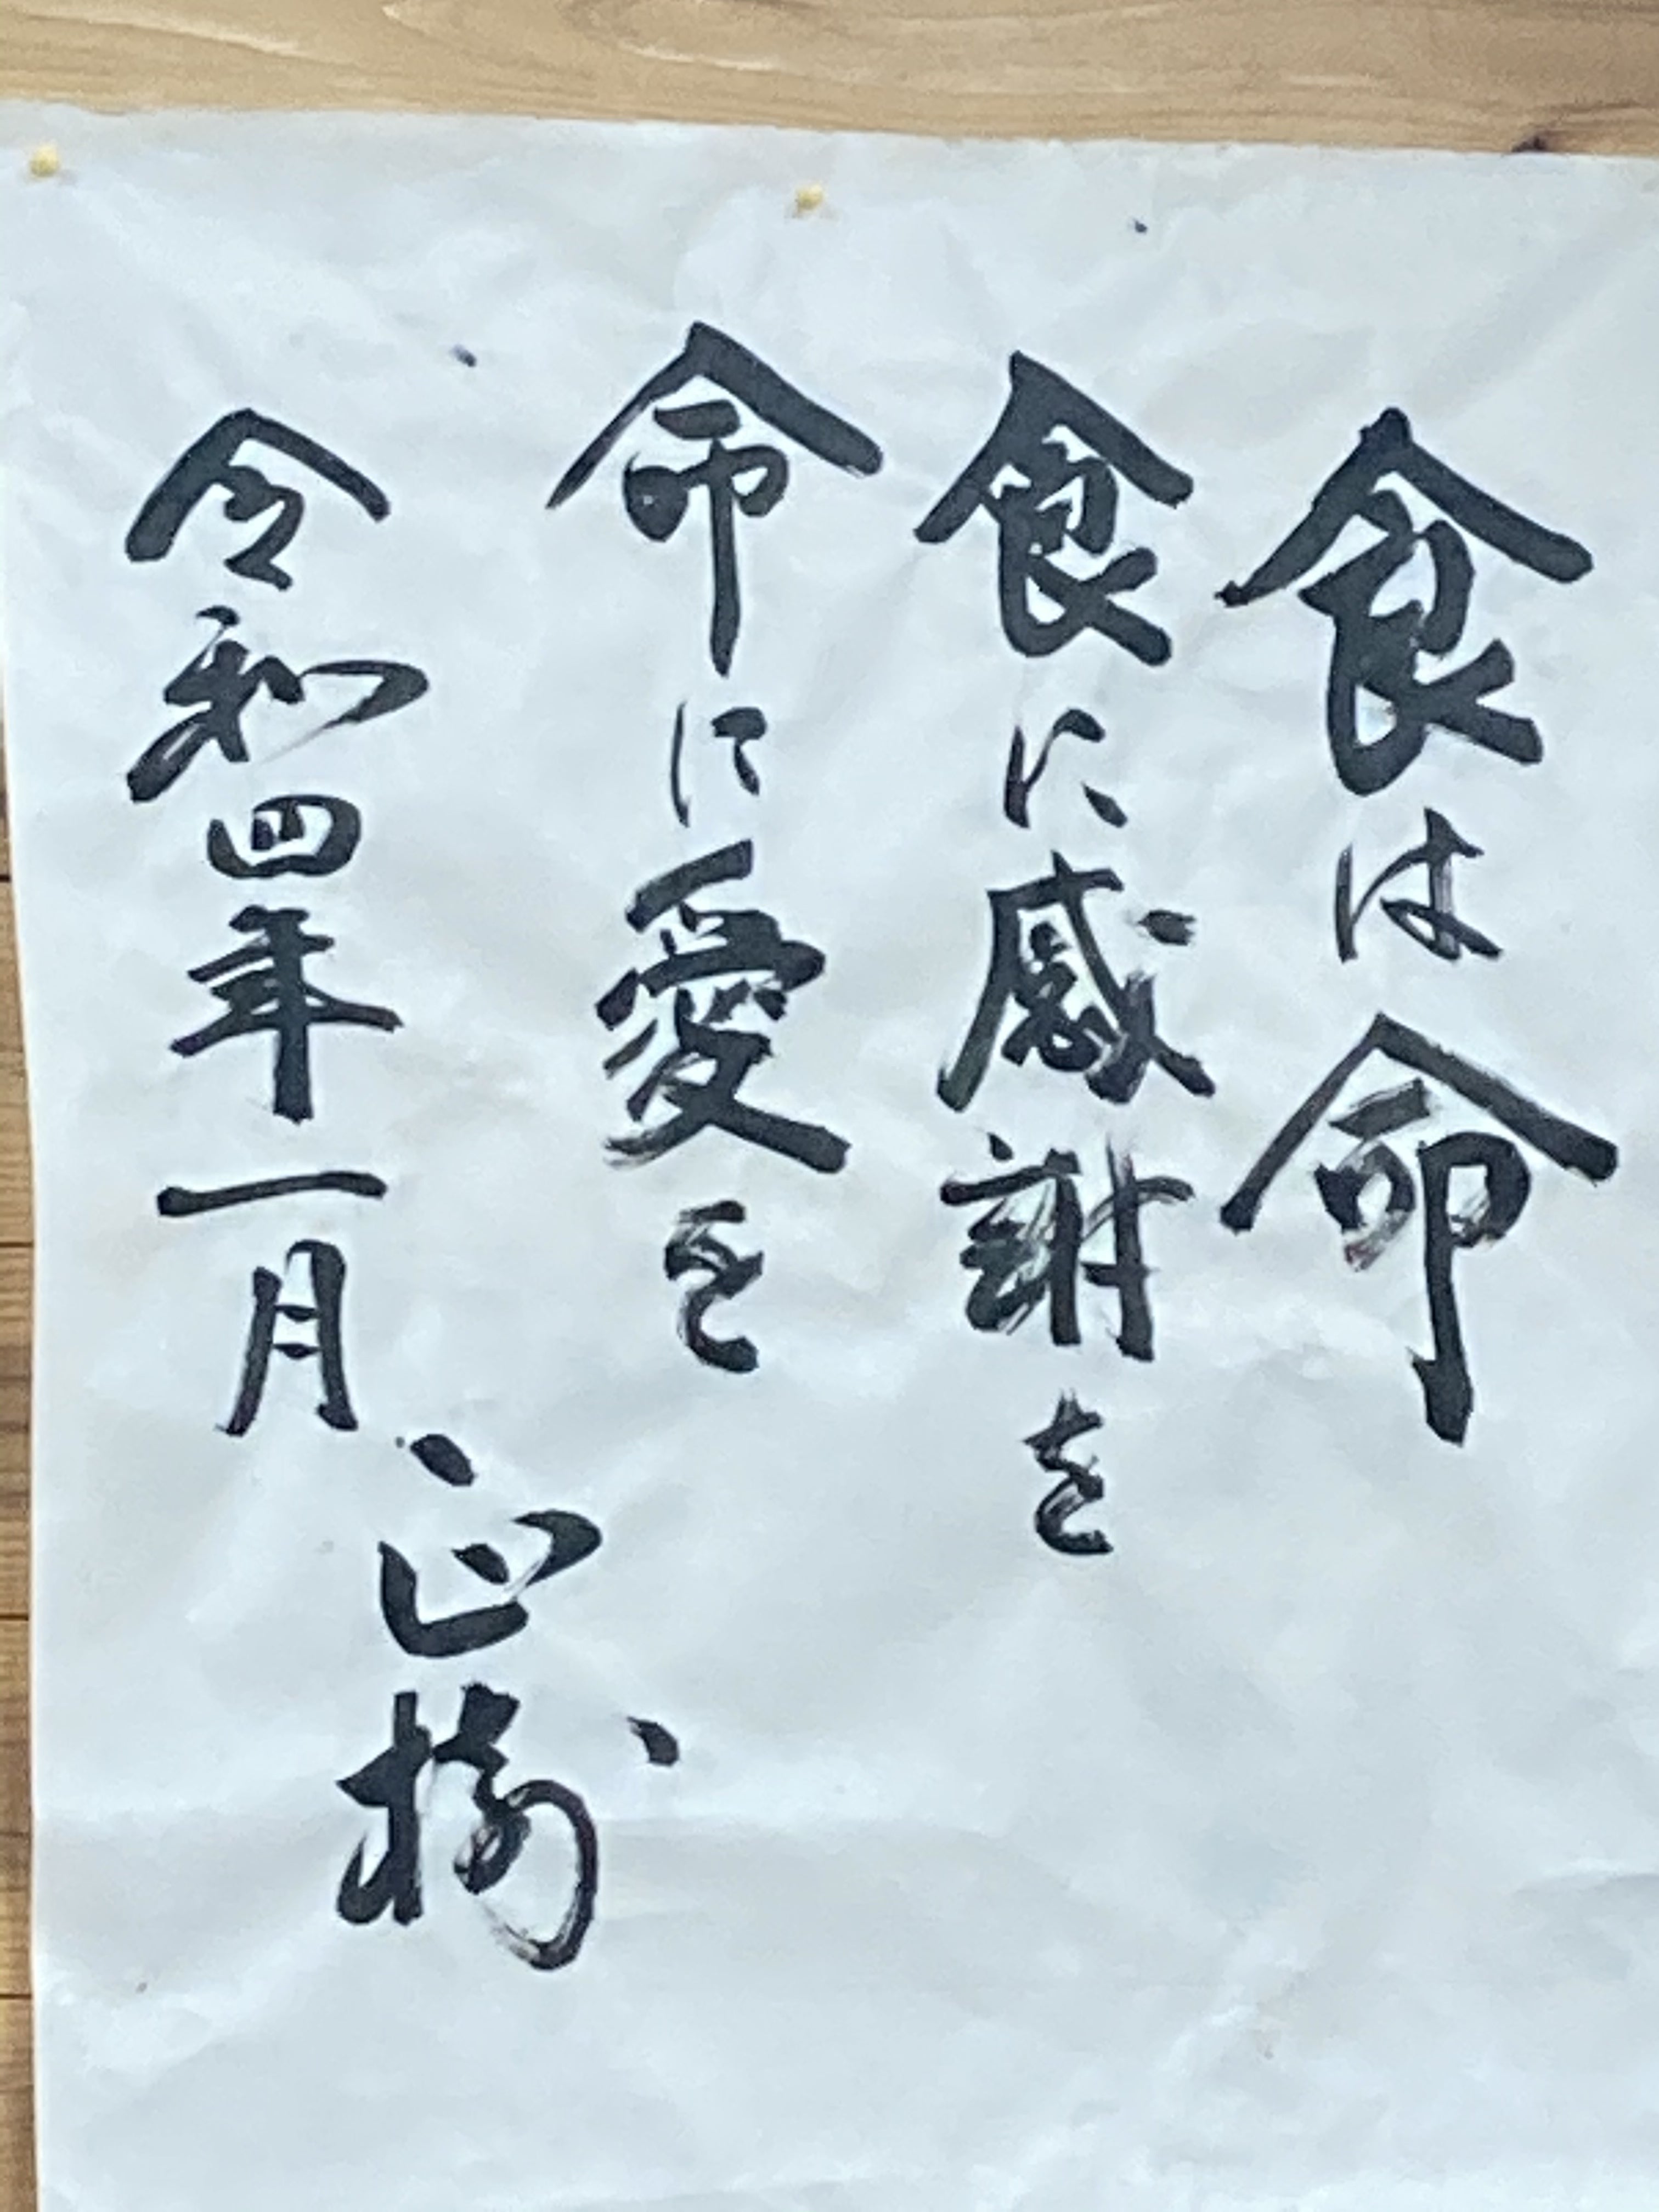 食は命
食に感謝を
命に愛を
令和四年一月